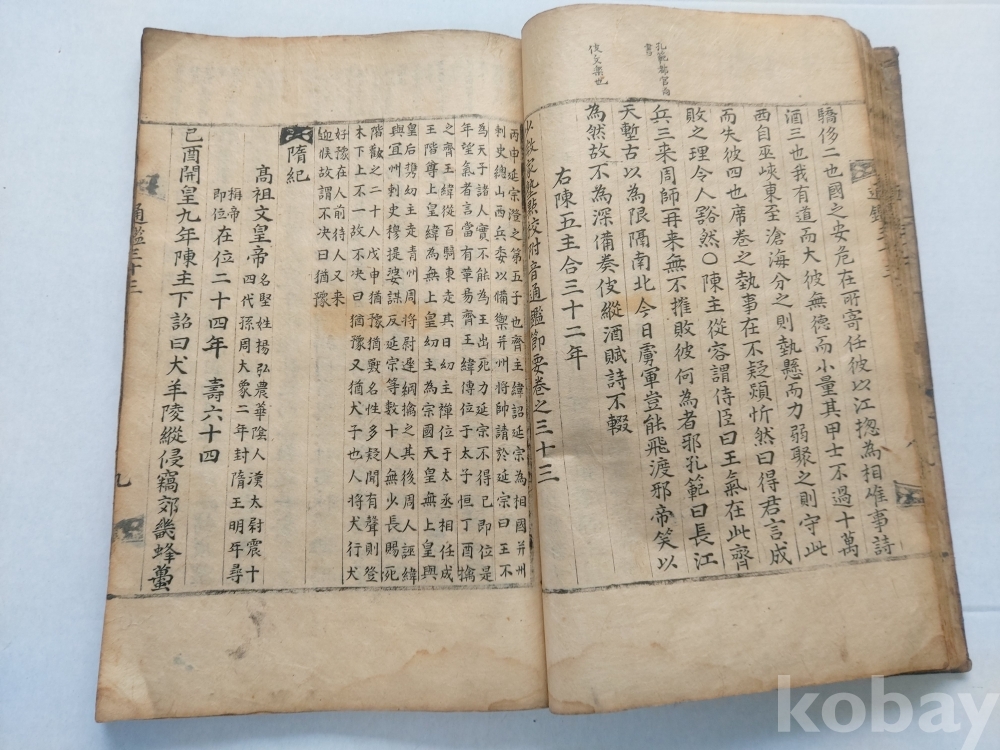 孔範都官尚
書
伎文慶也
驕侈二也國之安危在所寄任彼以江揔為相唯事詩
酒三也我有道而大彼無德而小量其甲士不過十萬
西自巫峽東至滄海分之則埶懸而力弱聚之則守此
而失彼四也席卷之埶事在不疑熲忻然曰得君言成
敗之理令人豁然〇陳主從容謂侍臣曰王氣在此齊
兵三來周師再来無不摧敗彼何為者邪孔範曰長江
天塹古以為限隔南北今日虜軍豈能飛渡邪帝笑以
為然故不為深備奏伎縱酒賦詩不輟
右陳五主合三十二年
校附音通鑑節要卷之三十三
丙申延宗澄之第五子也齊主緯詔延宗為相國并州
刺史總山西兵委以備禦并州將帥請於延宗曰王不
為天子諸人實不能為王出死力延宗不得已即位是
年望氣者言當有革易齊主緯傳位于太子恒丁酉擒
之齊主緯從百騎東走其日幼主禪位于太丞相任成
王階尊上皇緯為無上皇幼主為宗國天皇無上皇與
皇后携幼主走青州周將尉遅綱擒之其後周人誣緯
與宜州刺史穆提婆謀反延宗等數十人無少長賜死
階勸之二十人戊申猶豫猶獸名性多疑聞有聲則登
木下上不一故不决曰猶豫又犬子也人将犬行犬
好豫在人前待人又来
迎候故謂不决曰猶豫
隋紀
高祖文皇帝
名堅姓揚弘農華陰人漢太尉震十
四代孫周大象二年封隋王明年尋
稱帝
即位
在位二十四年 壽六十四
己酉開皇九年陳主下詔曰犬羊陵縱侵竊郊畿蜂蠆
通鑑三十三
九
kobay